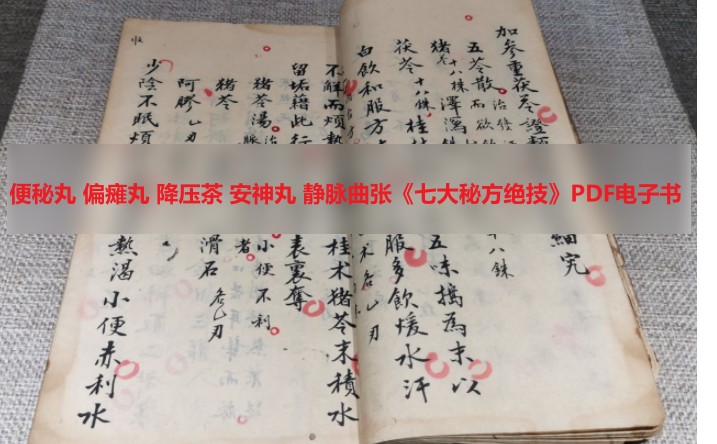 便秘丸 偏瘫丸 降压茶 安神丸 静脉曲张《七大秘方绝技》PDF电子书
加参重茯苓證類
細究
五苓散
治發汗
而欲飲
十八銖
猪苓十八株
澤瀉
五味搗為末以
茯苓十八銖
桂枝
白飲和服方
服多飲煖水汗
不解而煩熱
桂术猪苓末積水
留垢藉此行
表裏奪
猪苓湯治
小便不利
猪苓
滑石各乙刃
阿膠乙刃
少陰不眠煩
熱渴小便赤利水
收